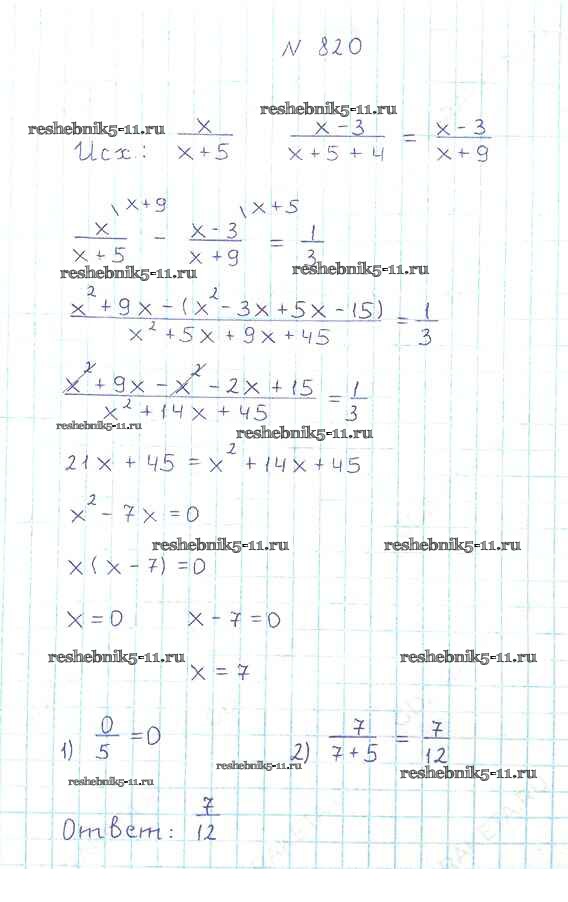 N 820
reshebnik5-11.ru
reshebnik5-11.ru
Исх: x/(x+5) (x-3)/(x+5+4) = (x-3)/(x+9)
x/(x+5) \x+9 - (x-3)/(x+9) \x+5 = 1/3
reshebnik5-11.ru reshebnik5-11.ru
(x²+9x-(x²-3x+5x-15))/(x²+5x+9x+45) = 1/3
(x²+9x-x²-2x+15)/(x²+14x+45) = 1/3
reshebnik5-11.ru reshebnik5-11.ru
21x+45=x²+14x+45
x²-7x=0
reshebnik5-11.ru reshebnik5-11.ru
x(x-7)=0
x=0 x-7=0
reshebnik5-11.ru reshebnik5-11.ru
x=7
1) 0/5 =0 2) 7/(7+5) = 7/12
reshebnik5-11.ru reshebnik5-11.ru
reshebnik5-11.ru
Ответ: 7/12